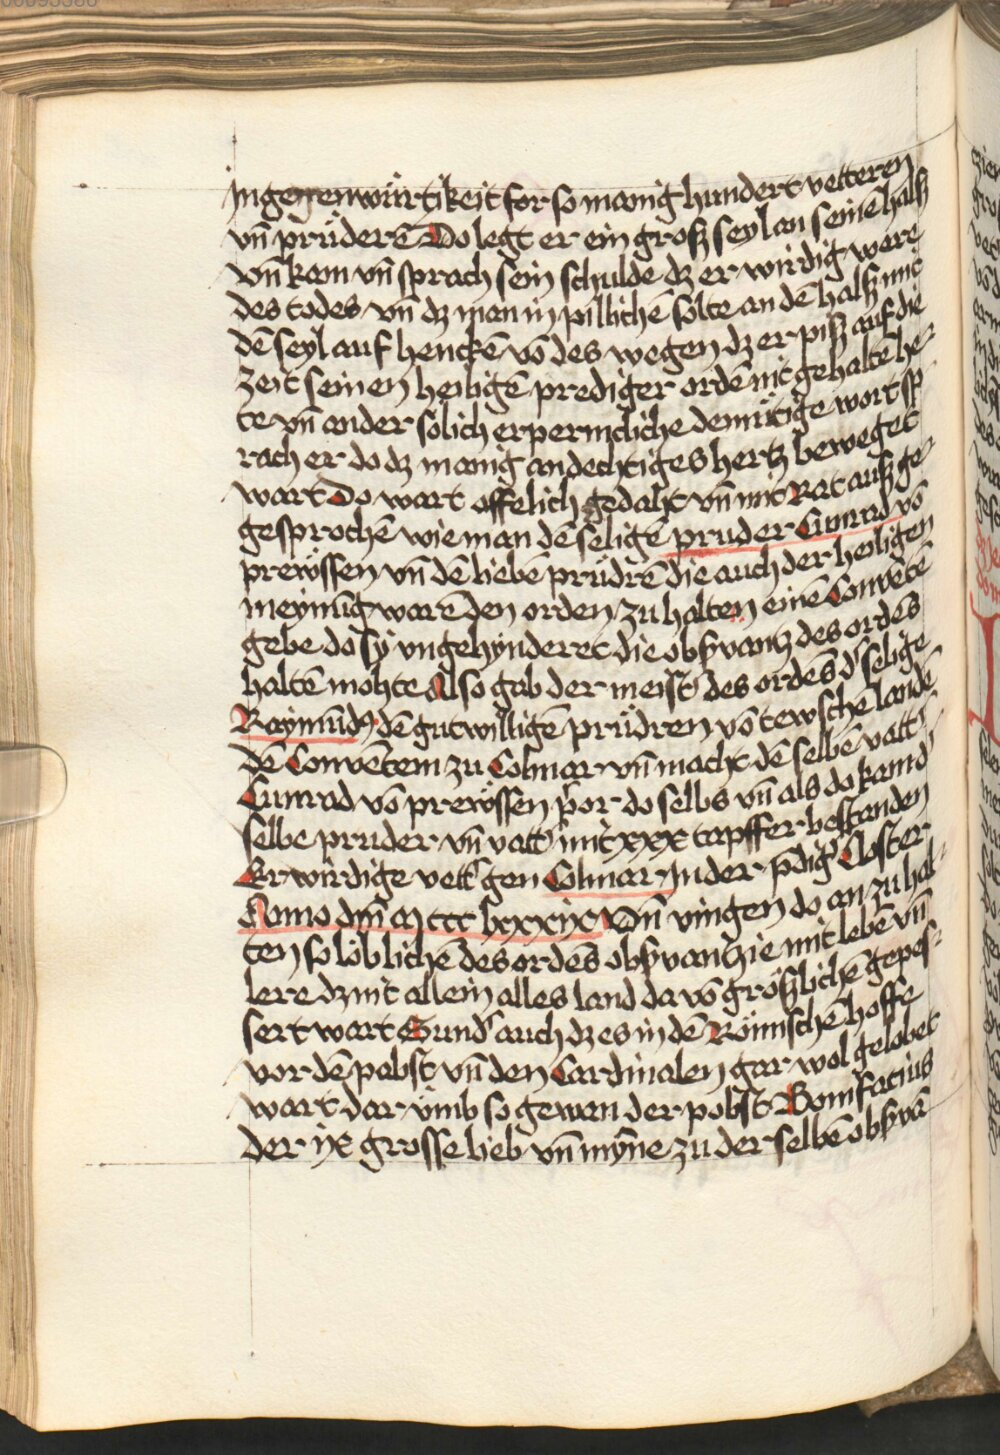 In gegenwürtikeit for so manig hundert vetteren
vn̄ prüderē Do legt er ein groß seyl an seinē halß
vn̄ kam vn̄ sprach sein schulde dz er wirdig were
des todes vn̄ dz man in pillichē solte an dē halß mit
dē seyl auf henckē vō des wegen dz er piß auf die
zeit seinen heiligē prediger ordē nit gehaltē he-
te vn̄ ander solich erpermcliche demütige wort sp
rach er do dz manig andechtiges hertz beweget
wart Do wart offelich gedaht vn̄ mit Rat auß ge-
gesprochē wie man dē seligē pruder Cunrad vō
prewssen vn̄ dē liebē prüdrē die auch der heiligen
meynūg warē den orden zu halten einē Convētē
gebe do sy ungehynderet die obsvantz des ordēs
haltē mohte Also gab der meistˀ des ordēs dˀ selige
Raymūdꝰ dē gutwilligē prüdren vō tewschē landē
dē Convētem zu Colmar vn̄ macht dē selbē vattˀ
Cunrad vō prewssen p̄or do selbs vn̄ als do kam dˀ
selbe pruder vn̄ vattˀ mit xxx tapffer bestanden
Erwirdige vettˀ gen Colmar In der p̄digˀ Closter
Anno dm̄ m ccc lxxxix Vn̄ vingen do an zu hal-
ten so löblichē des ordēs obsvantzie mit lebē vn̄
lere dz nit allein alles land da vō größlichē gepes-
sert wart Sundˀ auch dz es in dē Römischē hoffe
vor dē pabst vn̄ den Cardinalen gar wol gelobet
wart dar ümb so gewan der pobst Bonifacius
der ix grosse lieb vn̄ mȳne zu der selbē obsvā